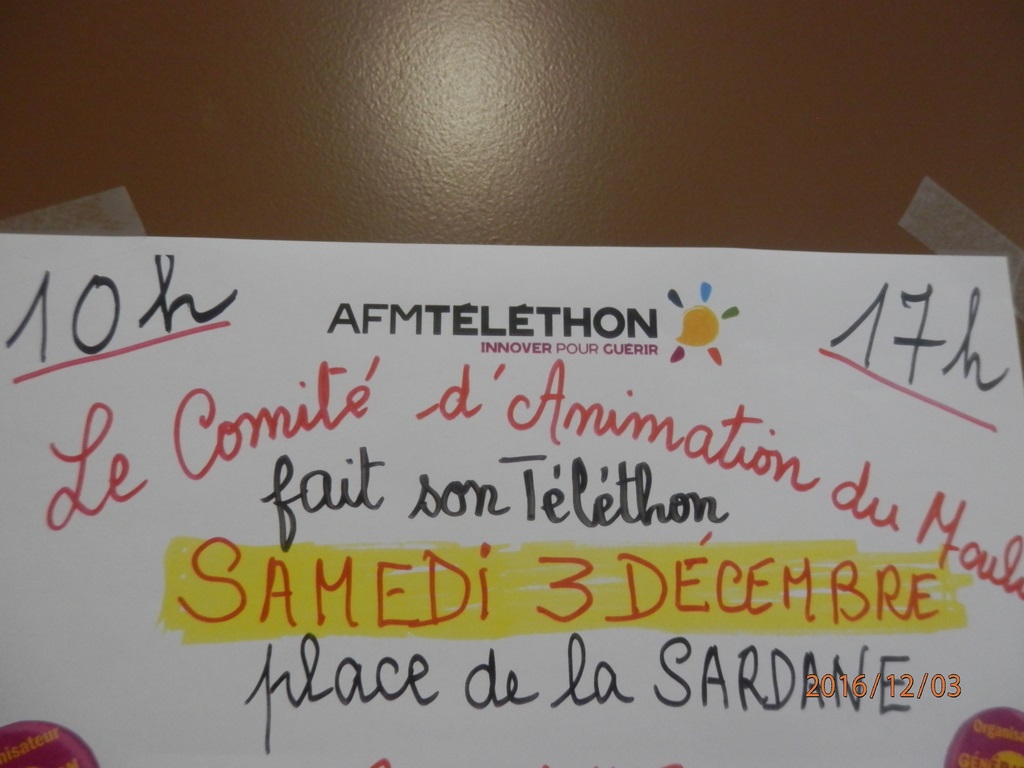 10h
AFMTÉLÉTHON
INNOVER POUR GUÉRIR
17h
Le Comité d'Animation du
fait son Téléthon
SAMEDI 3 DÉCEMBRE
place de la SARDANE
2016/12/03